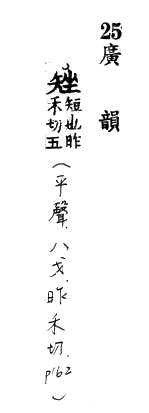 25廣韻
矬短也昨禾切五(平聲.八戈.昨禾切.p162)